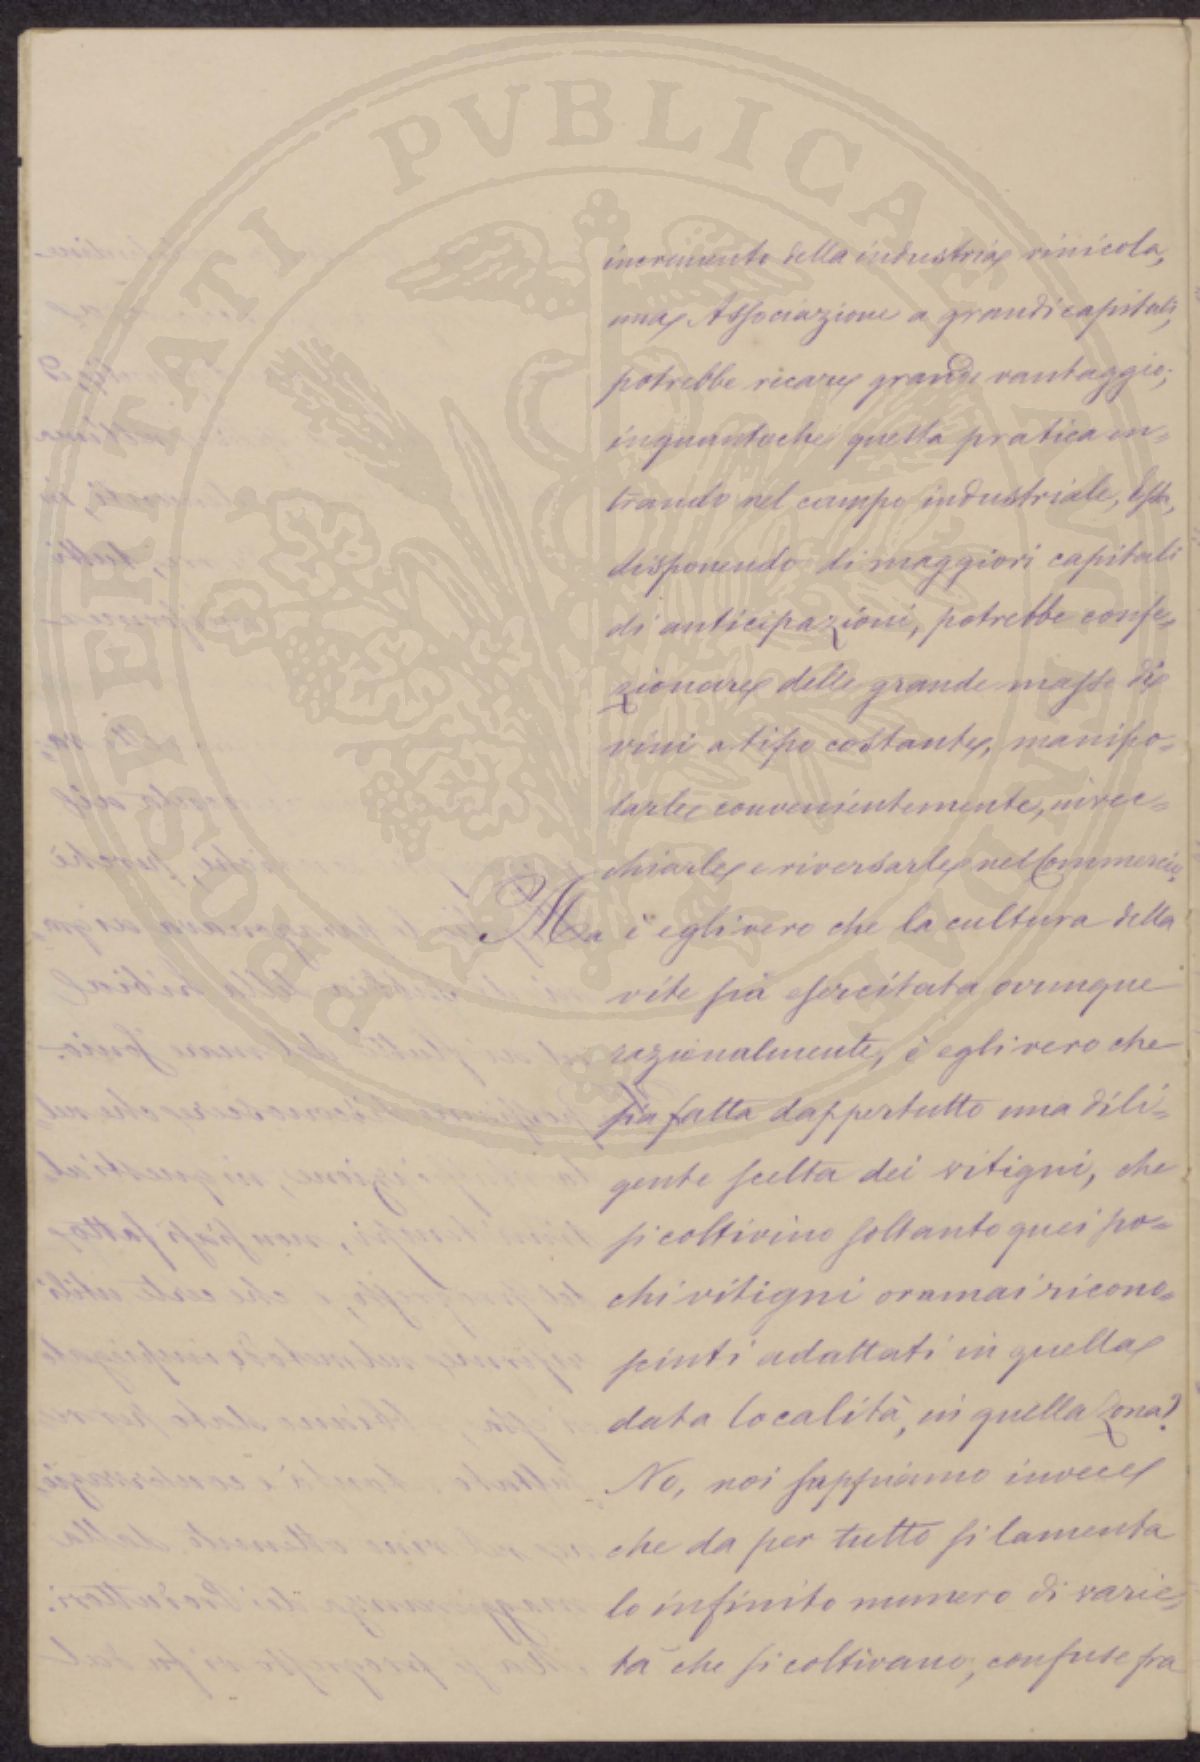 PROSPERITATI PVBLICAE AVGENDAE
incremento della industria vinicola,
una Associazione a grandi capitali,
potrebbe ricare grande vantaggio;
inquantoche questa pratica en=
trando nel campo industriale, Essa,
disponendo di maggiori capitali
di anticipazioni, potrebbe confe=
zionare delle grande masse di
vini a tipo costante, manipo=
larle convenientemente, invec=
chiarle e riversarle nel Commercio.
Ma è egli vero che la cultura della
vite sia esercitata ovunque
razionalmente, è egli vero che
sia fatta dappertutto una dili=
gente scelta dei vitigni, che
si coltivino soltanto quei po=
chi vitigni oramai ricono=
sciuti adattati in quella
data località, in quella Zona?
No, noi sappiamo invece
che da per tutto si lamenta
lo infinito numero di varie=
tà che si coltivano, confuse fra